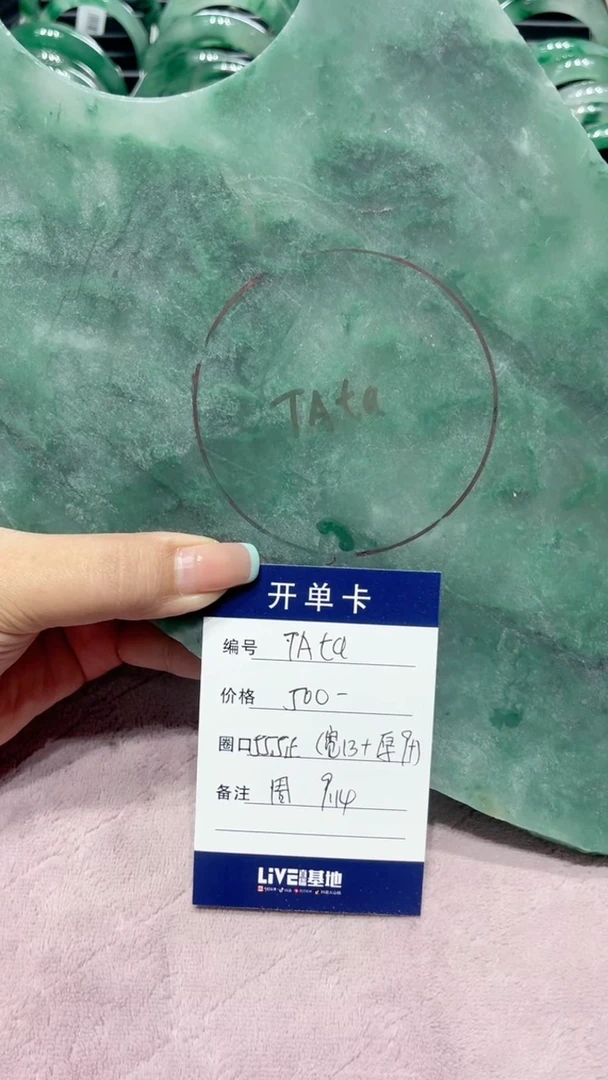 TAta
开单卡
编号 TAta
价格 500-
圈口 55.5正 (宽13+厚9+)
备注 周 9.14
LiVE直播基地